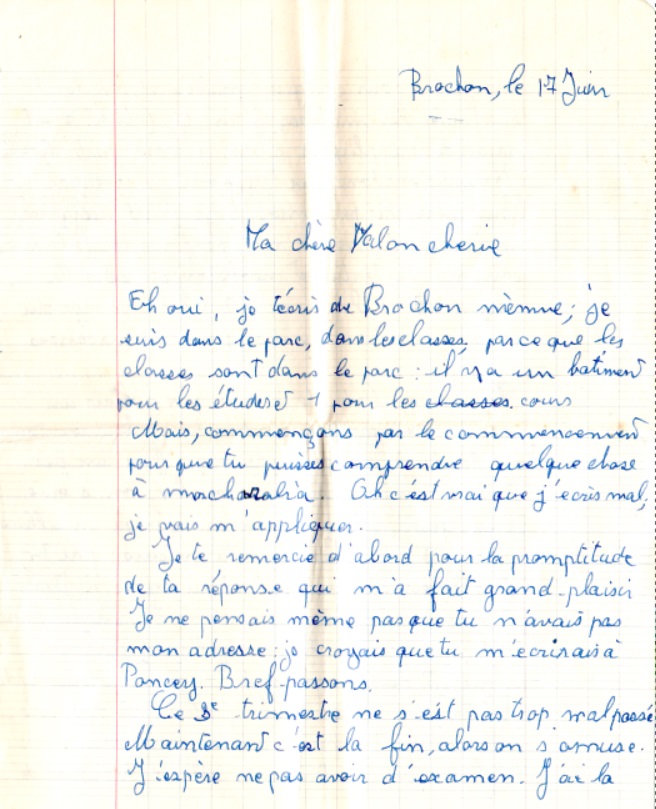 Brochon, le 17 Juin
Ma chère Valoncherie
Eh oui, je t'écris de Brochon même ; je
suis dans le parc, dans les classes, parce que les
classes sont dans le parc : il y a un batiment
pour les études et 1 pour les classes. cours
Mais, commençons par le commencement
pour que tu puisses comprendre quelque chose
à mon Ah c'est vrai que j'écris mal,
je vais m'appliquer.
Je te remercie d'abord pour la promptitude
de ta réponse qui m'a fait grand-plaisir
Je ne pensais même pas que tu n'avais pas
mon adresse ; je croyais que tu m'écrirais à
Poncey. Bref passons.
Ce 3e trimestre ne s'est pas trop mal passé
Maintenant c'est la fin, alors on s'amuse.
J'espère ne pas avoir d'examen. J'ai la